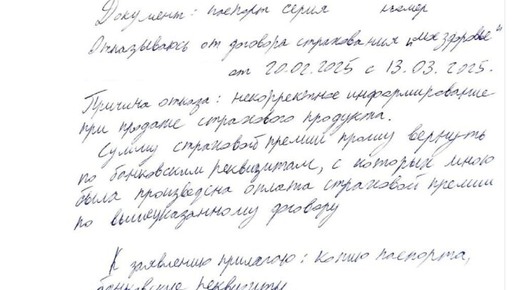 Документ: паспорт серия номер
Отказываюсь от договора страхования „мех здоровье"
от 20.02.2025 с 13.03.2025.
Причина отказа: некорректное информирование
при продаже страхового продукта.
Сумму страховой премии прошу вернуть
по банковским реквизитам, с которых мною
была произведена оплата страховой премии
по вышеуказанному договору
К заявлению прилагаю: копию паспорта,
банковские реквизиты